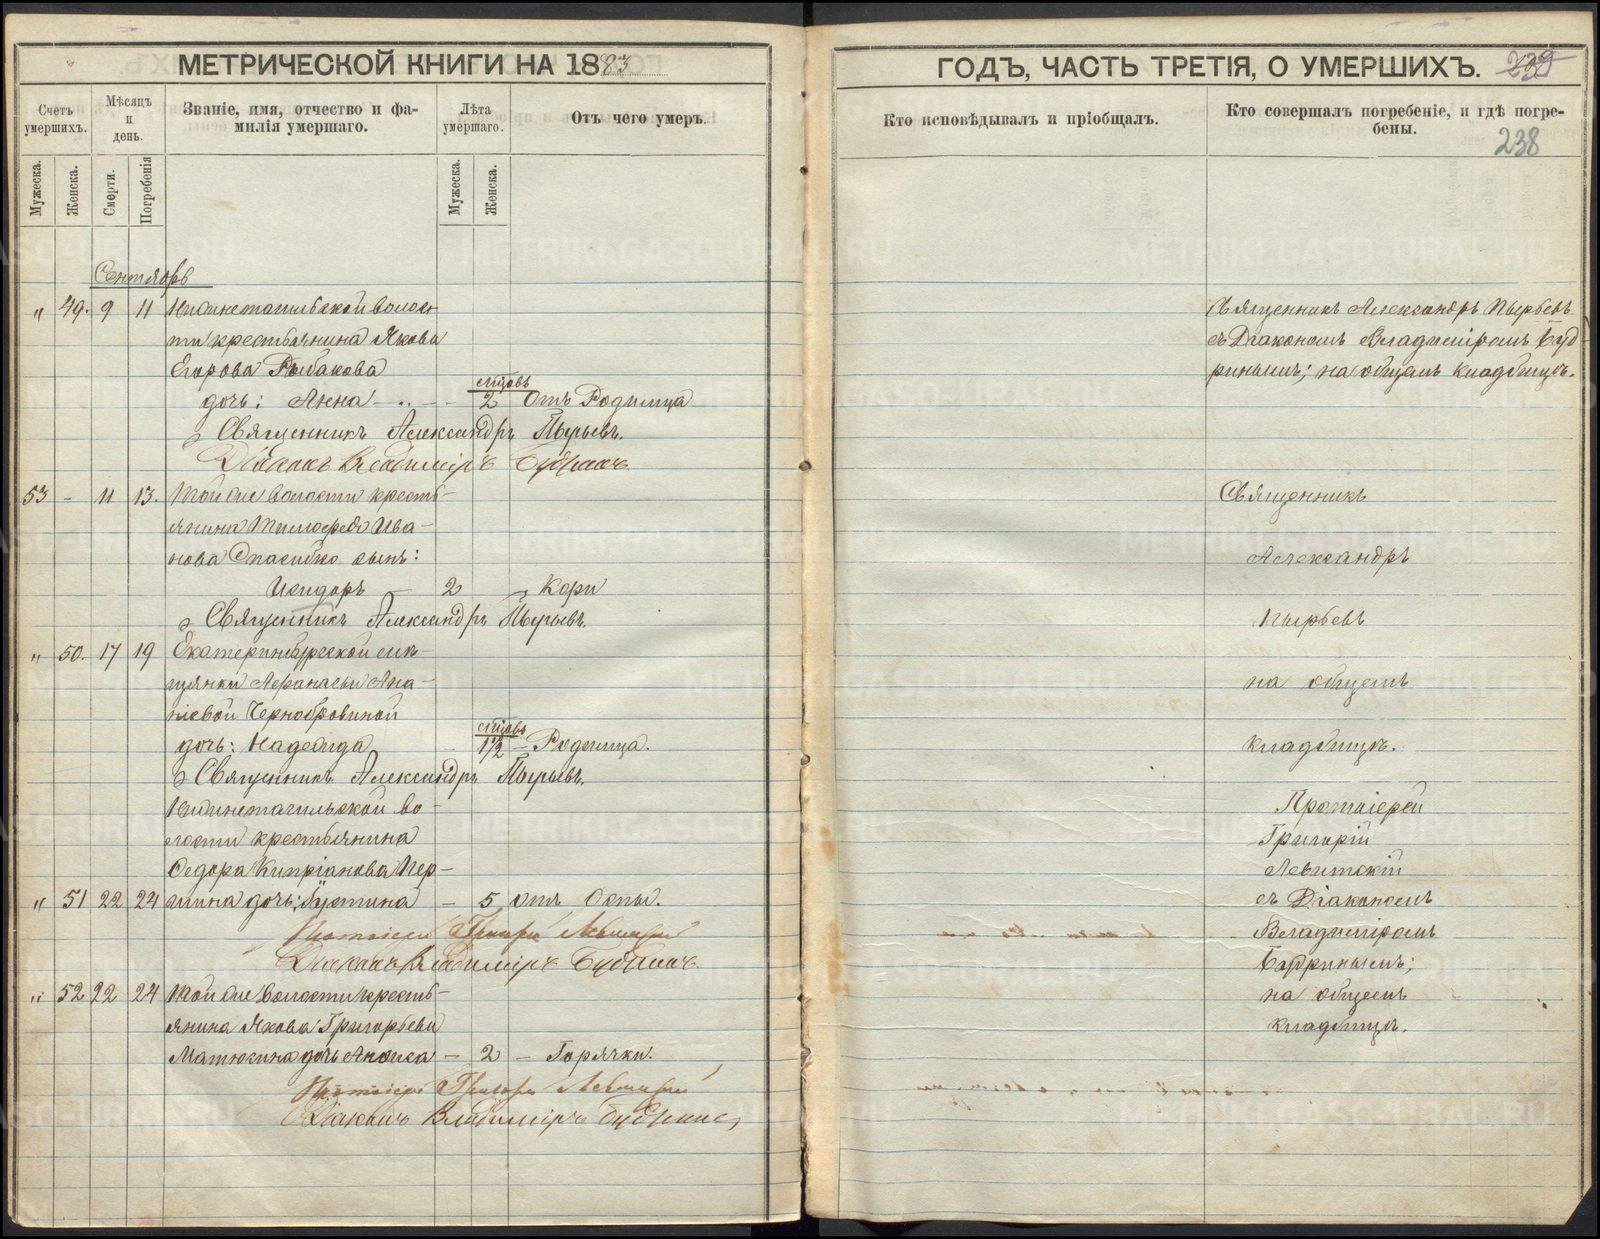 МЕТРИЧЕСКОЙ КНИГИ НА 1883
Счетъ умершихъ.
Мѣсяцъ и день.
Званіе, имя, отчество и фамилія умершаго.
Лѣта умершаго.
Отъ чего умеръ.
Мужеска.
Женска.
Смерти.
Погребенія
Мужеска.
Женска.
Сентябрь
" 49. 9 11 Нижнетагильской волос
ти крестьянина Якова
Егорова Рыбакова
дочь: Анна 2 Отъ Родимца
Священникъ Александръ Пырьевъ.
Діаконъ Владиміръ
53 - 11 13. Той же волости кресть-
янина Ива-
нова сынъ:
Исидоръ - 2 Кори
Священникъ Александръ Пырьевъ.
" 50. 17 19 Екатеринбургской мѣ-
щанки Ана-
ніевой Чернобровиной
дочь: Надежда 1½ - Родимца.
Священникъ Александръ Пырьевъ.
Нижнетагильской во-
лости крестьянина
Ѳедора Кипріанова Пер-
шина дочь: Іустина - 5 отъ Оспы.
" 51 22 24
Протоіерей Григорій Левитскій
Діаконъ Владиміръ
" 52 22 24 Той же волости кресть-
янина Якова Григорьева
Матюгина дочь Анфиса - 2 - Горячки.
Протоіерей Григорій Левитскій
Діаконъ Владиміръ
ГОДЪ, ЧАСТЬ ТРЕТІЯ, О УМЕРШИХЪ. 239
Кто исповѣдывалъ и пріобщалъ.
Кто совершалъ погребеніе, и гдѣ погребены.
238
Священникъ Александръ Пырьевъ
съ Діакономъ Владиміромъ Буд-
ринымъ; на общемъ кладбищѣ.
Священникъ
Александръ
Пырьевъ
на общемъ
кладбищѣ.
Протоіерей
Григорій
Левитскій
съ Діакономъ
Владиміромъ
Будринымъ;
на общемъ
кладбищѣ.
METRIKI.GASO-URAL.RU